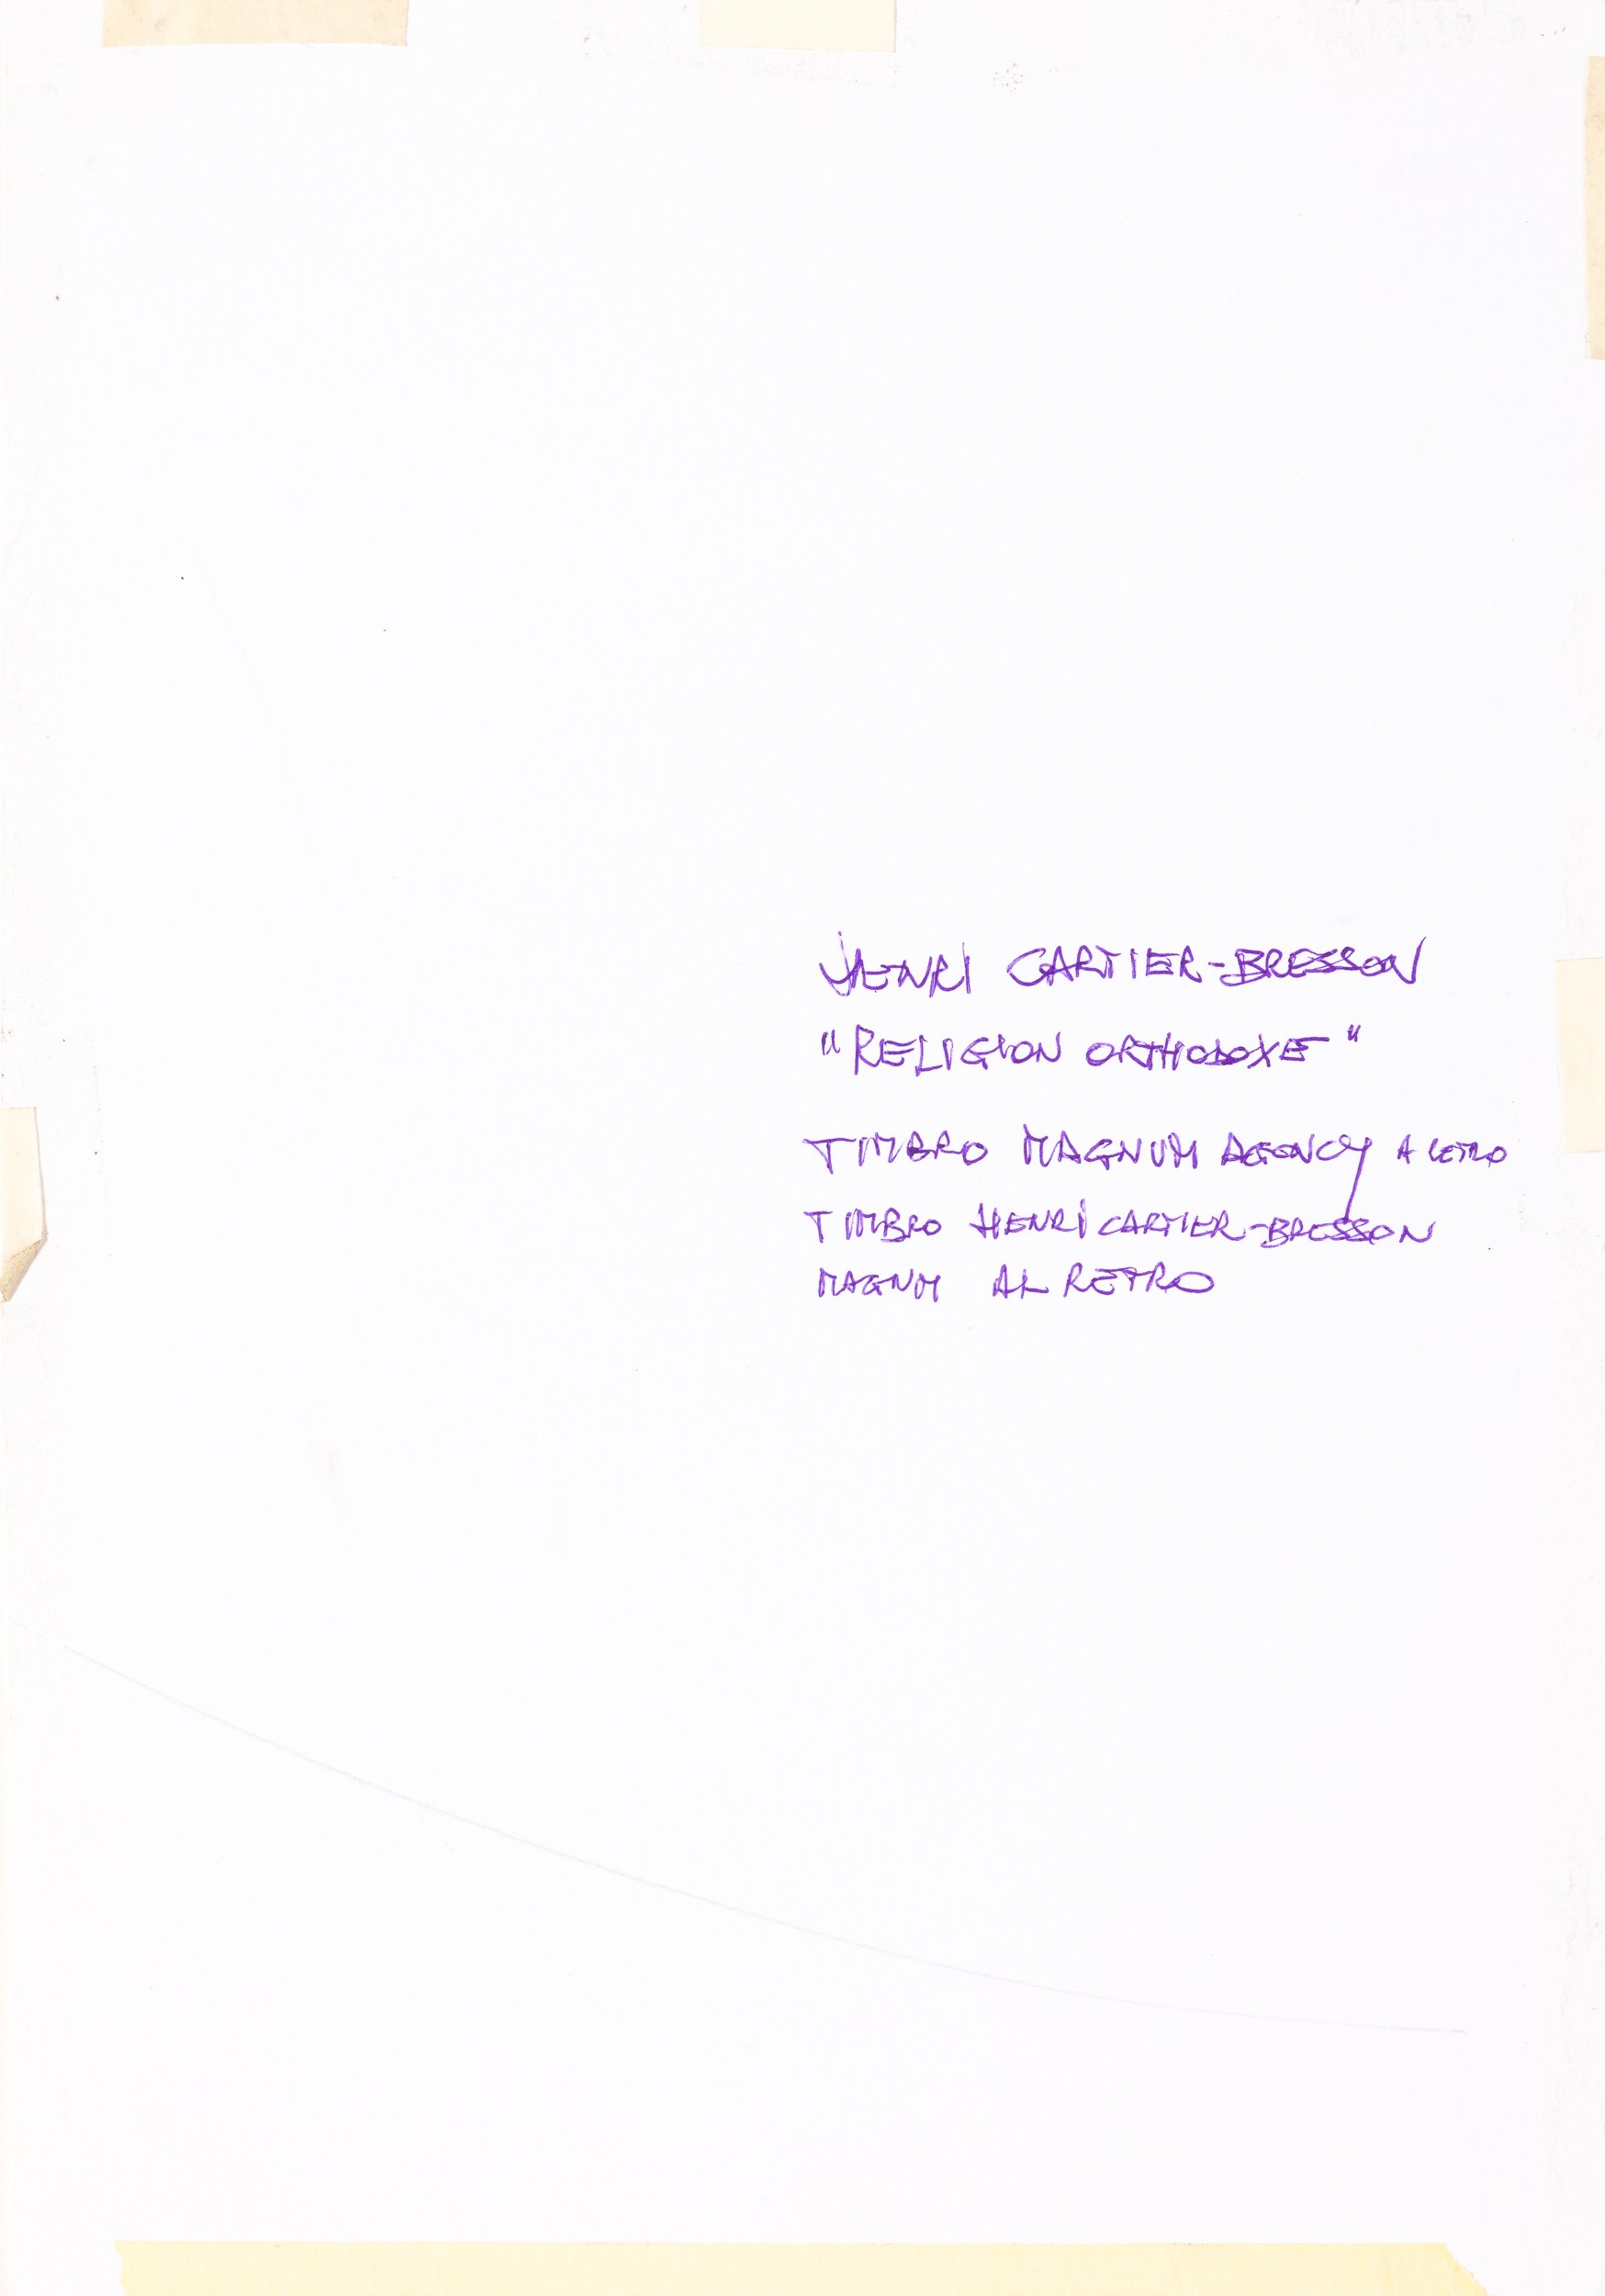 HENRI CARTIER-BRESSON
"RELIGION ORTHODOXE"
TIMBRO MAGNUM AGENCY A
TIMBRO HENRI CARTIER-BRESSON
MAGNM AL RETRO